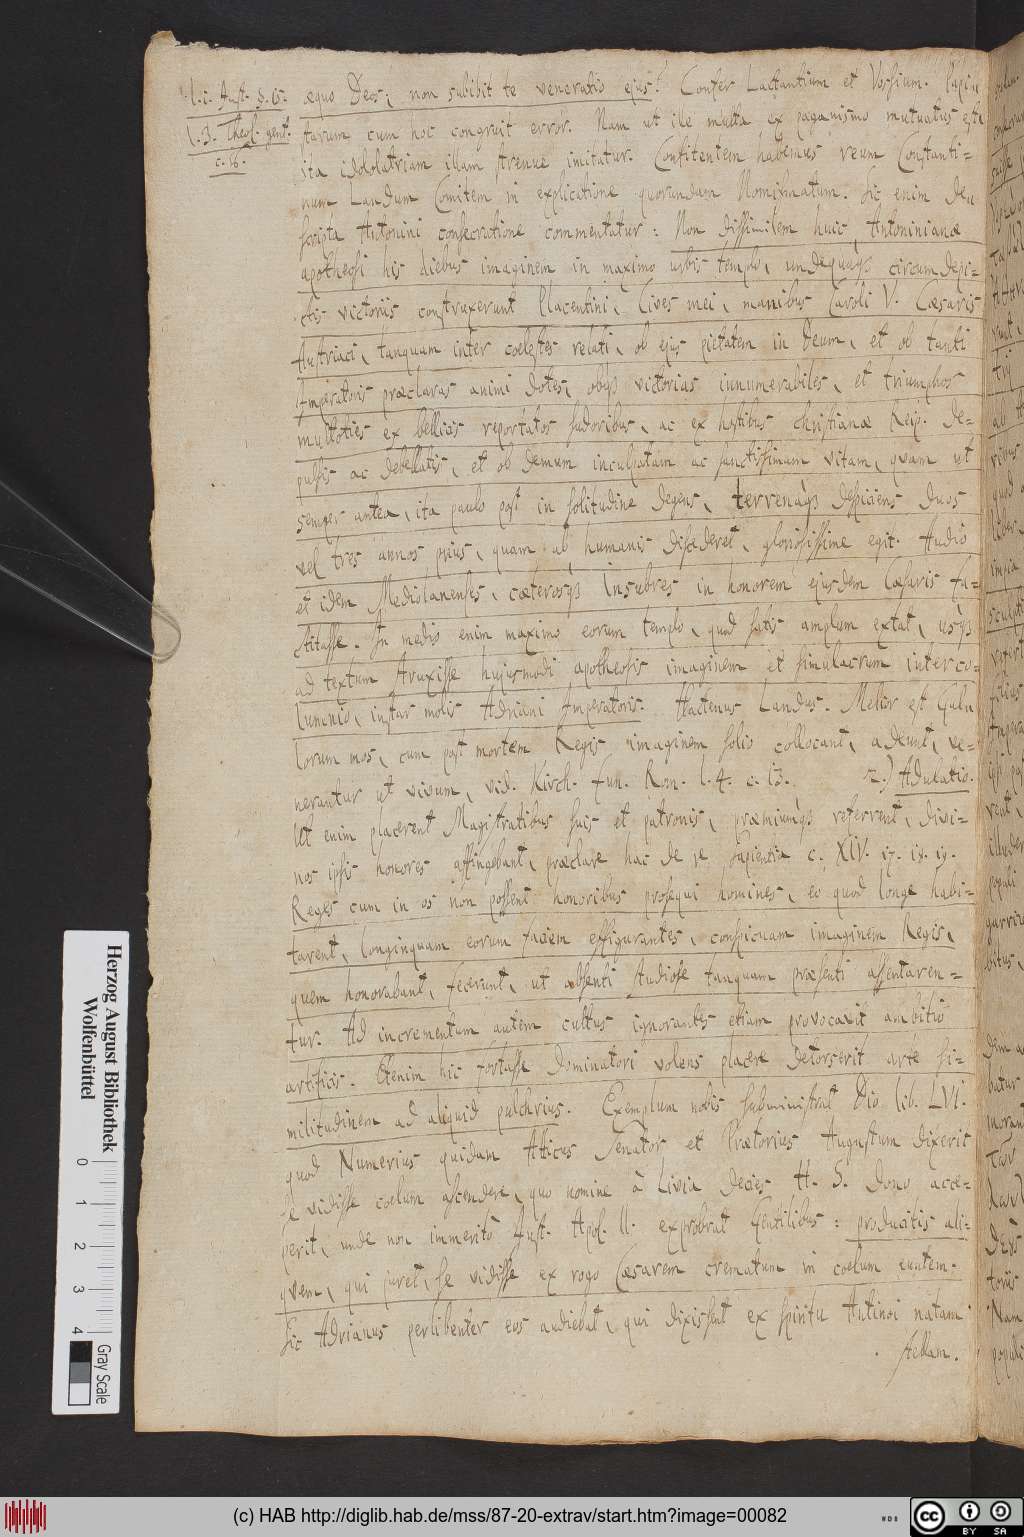 l. c. Inst. p. 15.
l. 3. Theol. gent.
c. 16.
æquo Deos; non subibit te veneratio ejus? Confer Lactantium et Vossium.
starum cum hoc congruit error. Nam ut ille multa ex paganismo mutuatus est;
ita idololatriam illam strenue imitatur. Confitentem habemus reum Constanti=
num Landum Comitem in explicatione quorundam Nomismatum. Sic enim de
scripta Antonini consecratione commentatur: Non dissimilem huic, Antoninianæ
apotheosi his diebus imaginem in maximo urbis templo, undequaqȝ circumdepi=
ctis victoriis construxerunt Placentini, Cives mei, manibus Caroli V. Cæsaris
Austriaci, tanquam inter coelestes relati, ob ejus pietatem in Deum, et ob tanti
Imperatoris præclaras animi dotes, obqȝ victorias innumerabiles, et triumphos
multoties ex bellicis reportatos sudoribus, ac ex hostibus christianæ Reip. de=
pulsis ac debellatis, et ob demum inculpatam ac sanctissimam vitam, quam ut
semper antea, ita paulo post in solitudine degens, terrenaqȝ despiciens duos
vel tres annos prius, quam ab humanis discederet, gloriosissime egit. Audio
et idem Mediolanenses, cæterosqȝ Insubres in honorem ejusdem Cæsaris fa=
ctitasse. In medio enim maximo eorum templo, quod satis amplum extat, usqȝ
ad tectum struxisse hujusmodi apotheosis imaginem et simulacrum interco=
lumnio, instar molis Adriani Imperatoris. Hactenus Landus. Melior est Gal
lorum mos, cum post mortem Regis imaginem solio collocant, adeunt, ve=
nerantur ut vivum, vid. Kirch. fun. Rom. l. 4. c. 13. 2.) Adulatio.
Ut enim placerent Magistratibus suis et patronis, præmiumqȝ referrent, divi=
nos ipsis honores affingebant, præclare hac de re Sapientia c. XIV. 17. 18. 19.
Reges cum in os non possent honoribus prosequi homines, eo quod longe habi=
tarent, longinquam eorum faciem effigurantes, conspicuam imaginem Regis,
quem honorabant, fecerunt, ut absenti studiose tanquam præsenti assentaren=
tur. Ad incrementum autem cultus ignorantes etiam provocavit ambitio
artificis. Etenim hic fortasse Dominatori volens placere detorserit arte si=
militudinem ad aliquid pulchrius. Exemplum nobis subministrat Dio lib. LVI.
quod Numerius quidam Atticus Senator et Prætorius Augustum dixerit
se vidisse coelum ascendere, quo nomine à Livia Decies H. S. dono acce=
perit, unde non immeritò Just. Apol. II. exprobrat Gentilibus: producitis ali=
quem, qui juret, se vidisse ex rogo Cæsarem crematum in coelum euntem.
Sic Adrianus perlibenter eos audiebat, qui dixissent ex spiritu Antinoi natam
stellam.
Herzog August Bibliothek
Wolfenbüttel
0 1 2 3 4
Gray Scale
(c) HAB http://diglib.hab.de/mss/87-20-extrav/start.htm?image=00082
cc BY SA